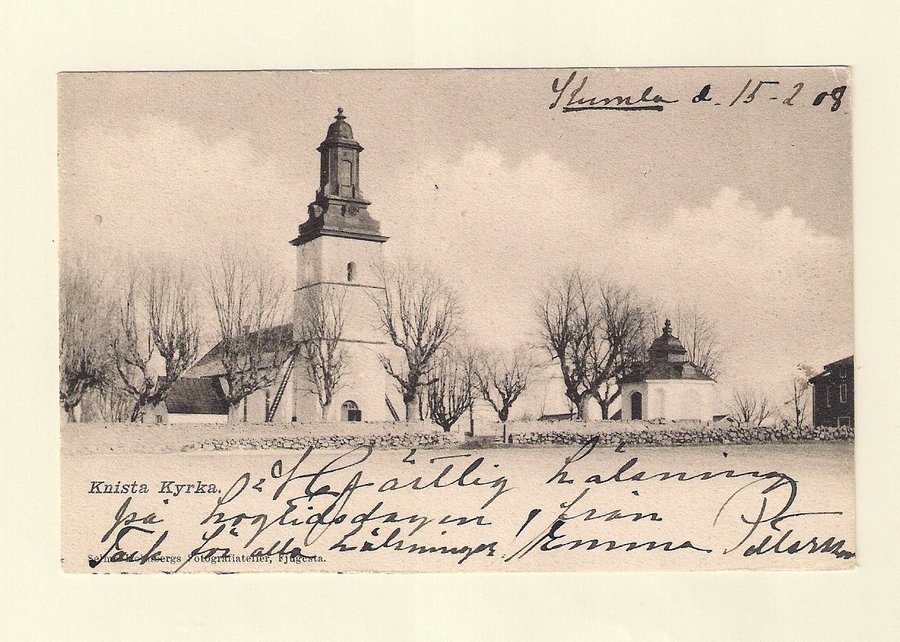 Kumla d. 15-2 08
Knista Kyrka.
Hjärtlig hälsning
på högtidsdagen, från
Tack för alla hälsningar. Emma Pettersson
Selma Holmbergs Fotografiatelier, Fjugesta.